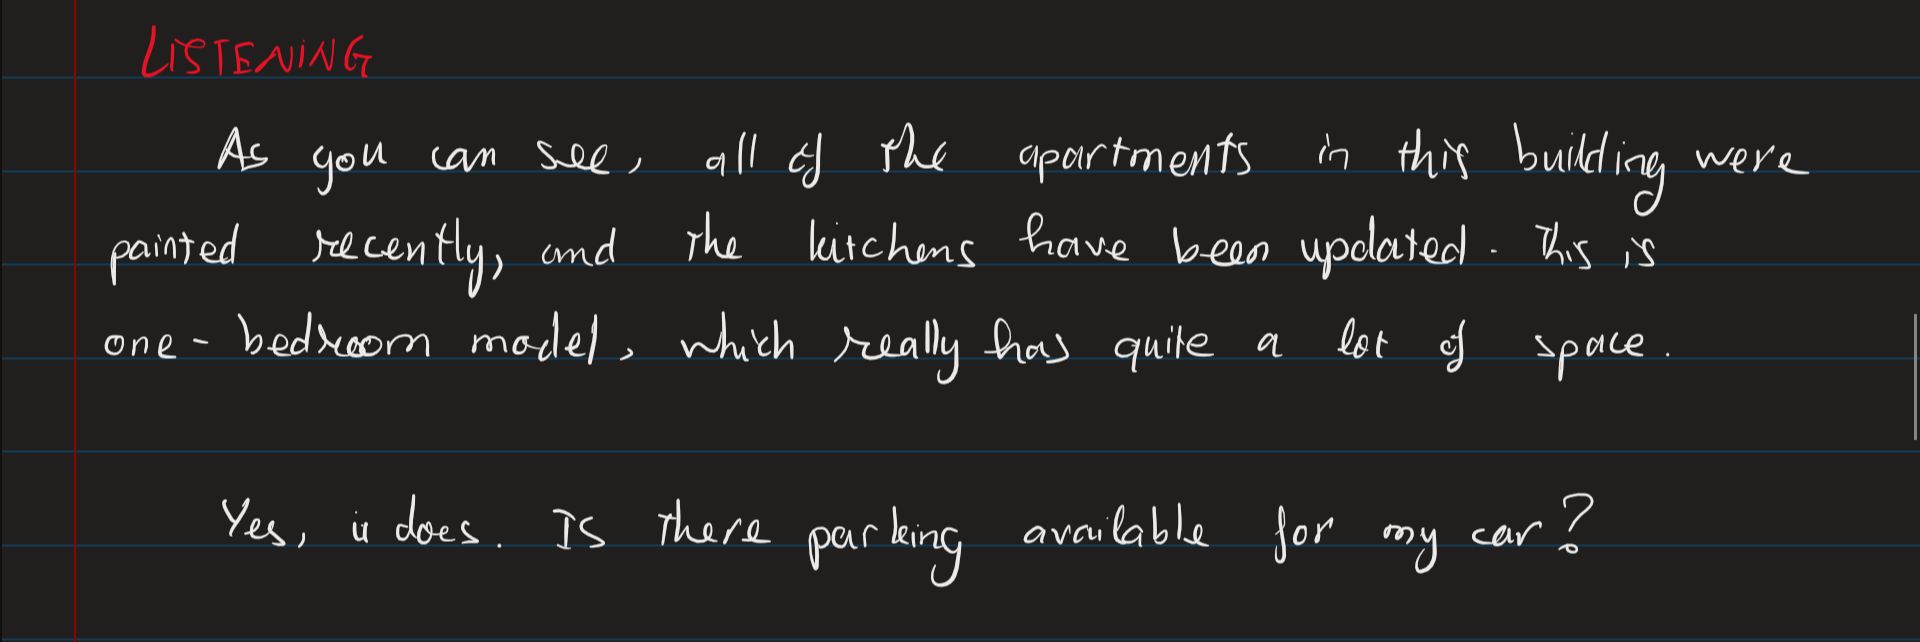 LISTENING
As you can see, all of the apartments in this building were
painted recently, and the kitchens have been updated. This is
one-bedroom model, which really has quite a lot of space.
Yes, it does. Is there parking available for my car?